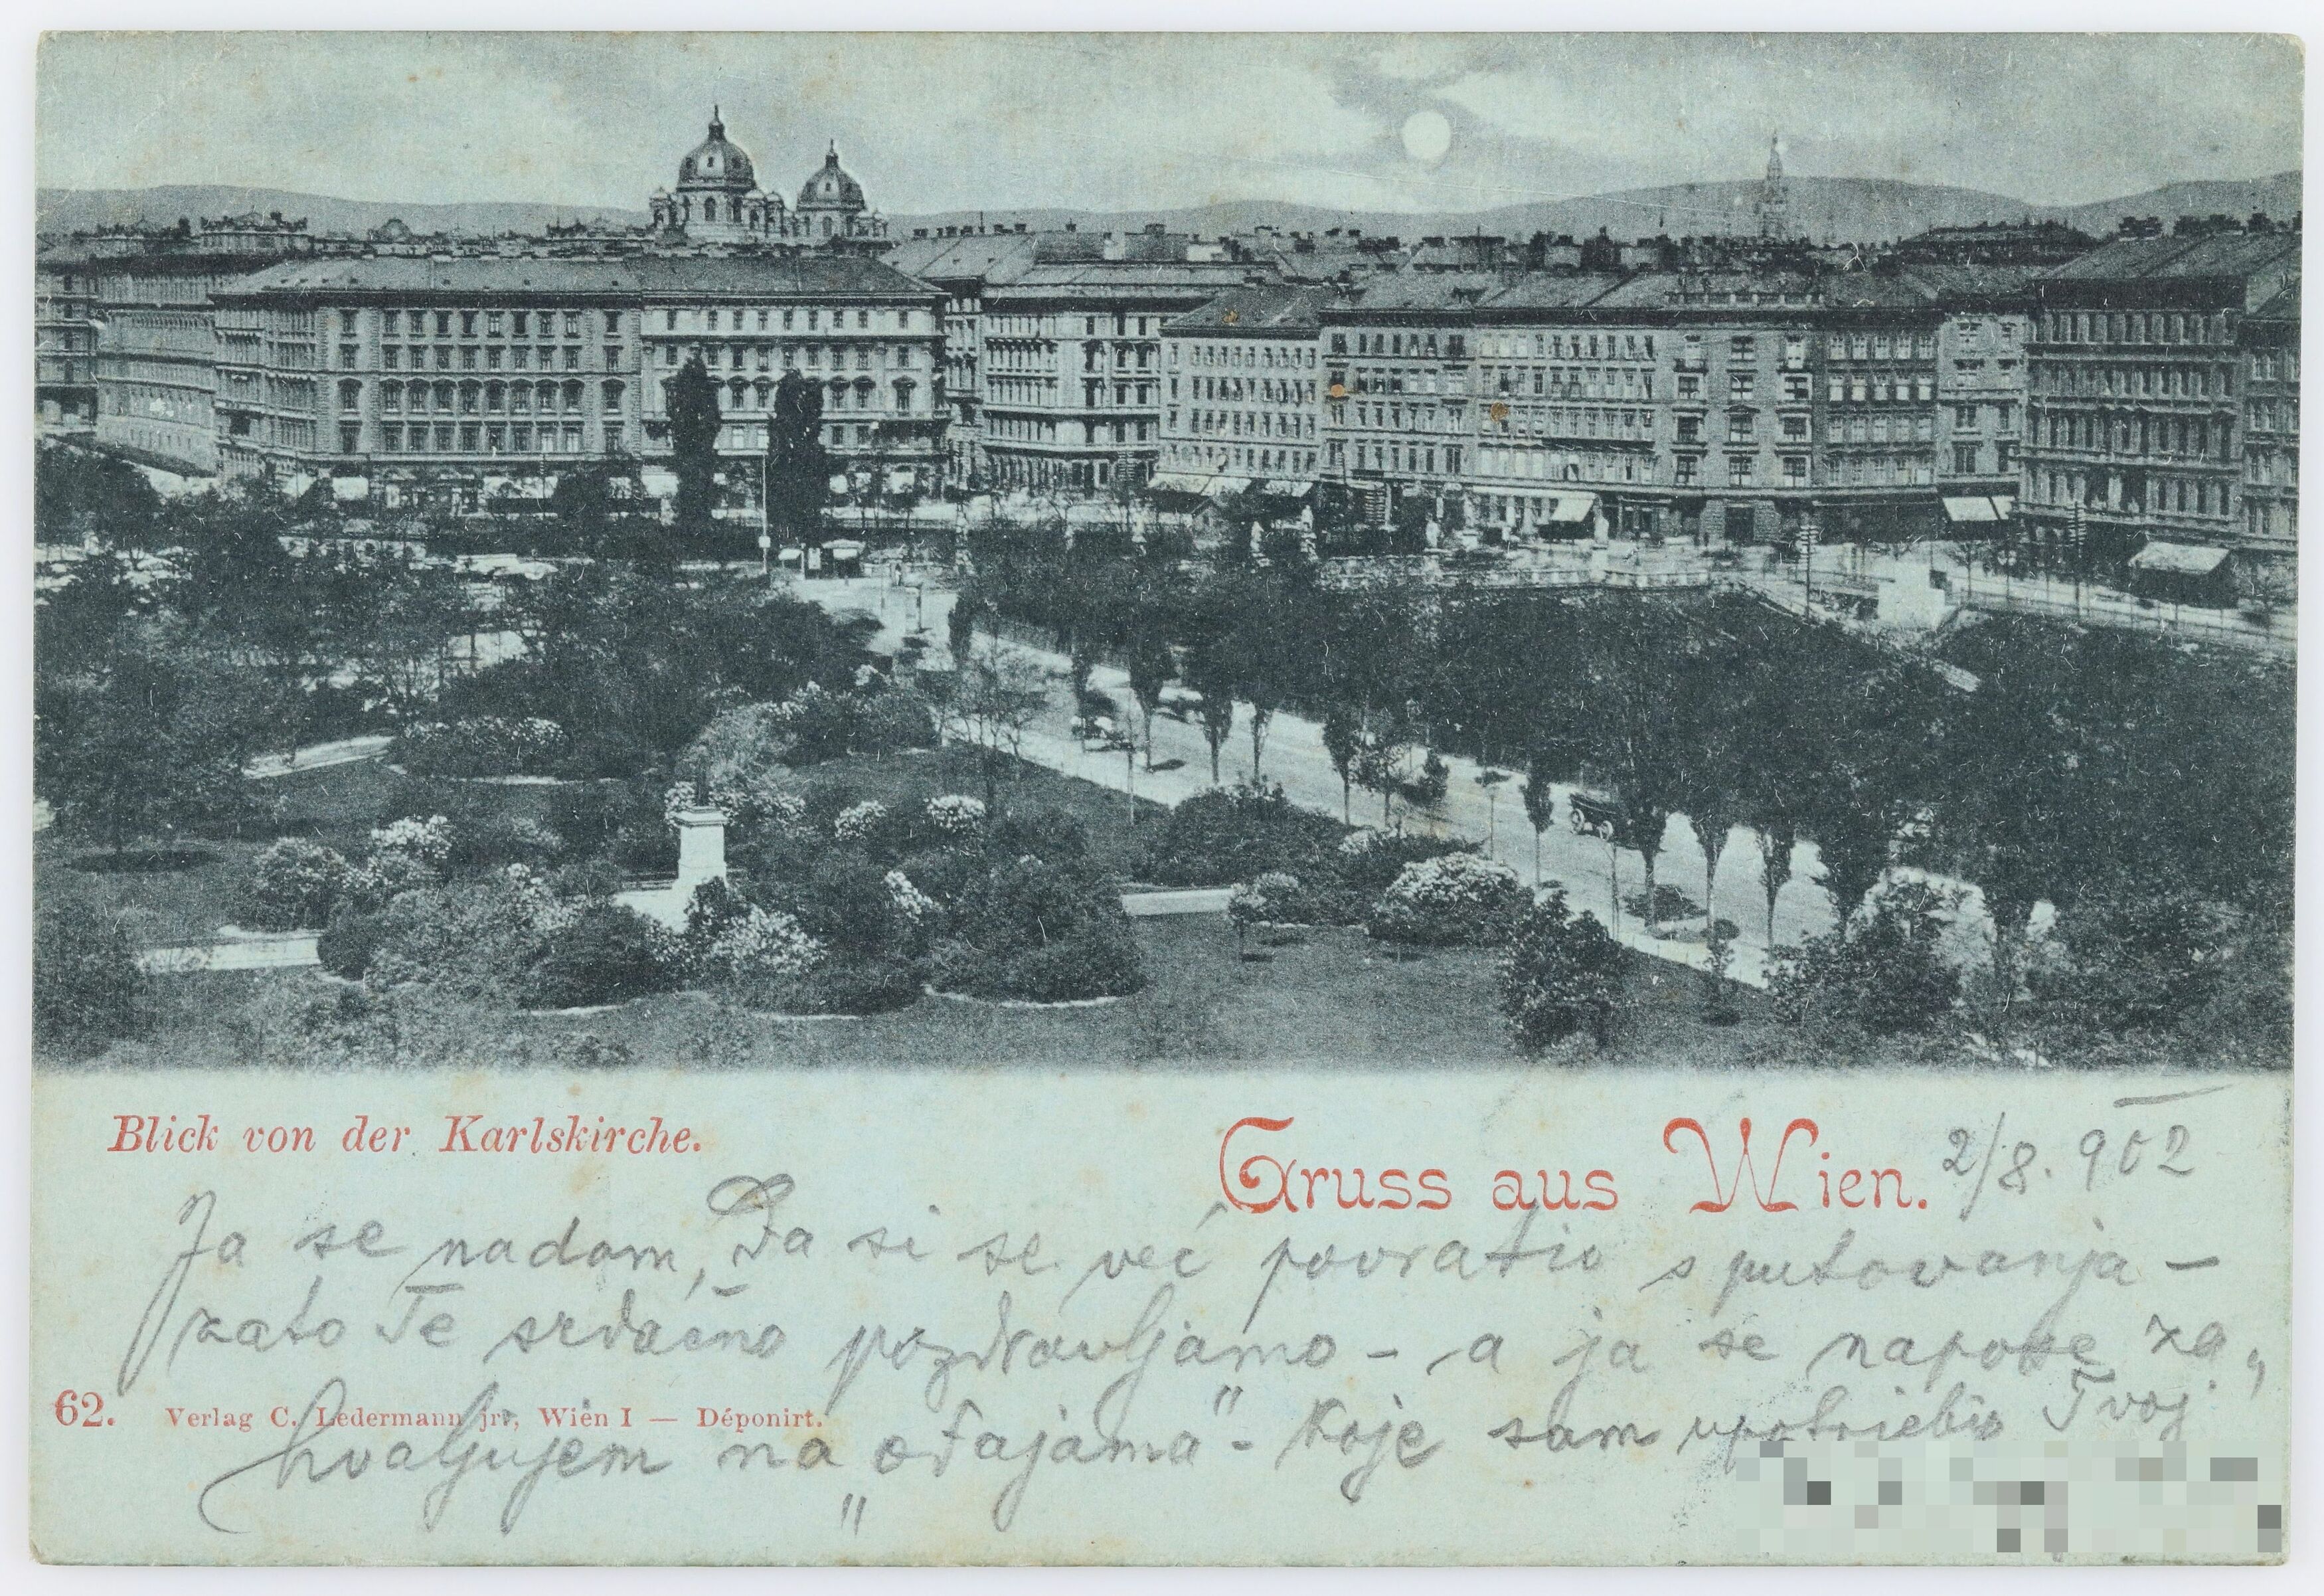 Blick von der Karlskirche.
Gruss aus Wien.
2/8. 902
Ja se nadam, Da si se već povratio s putovanja –
zato Te srdačno pozdravljamo – a ja se napose za„
hvaljujem na „ođajama" – koje sam upotriebio Tvoj
62. Verlag C. Ledermann jr., Wien I — Déponirt.